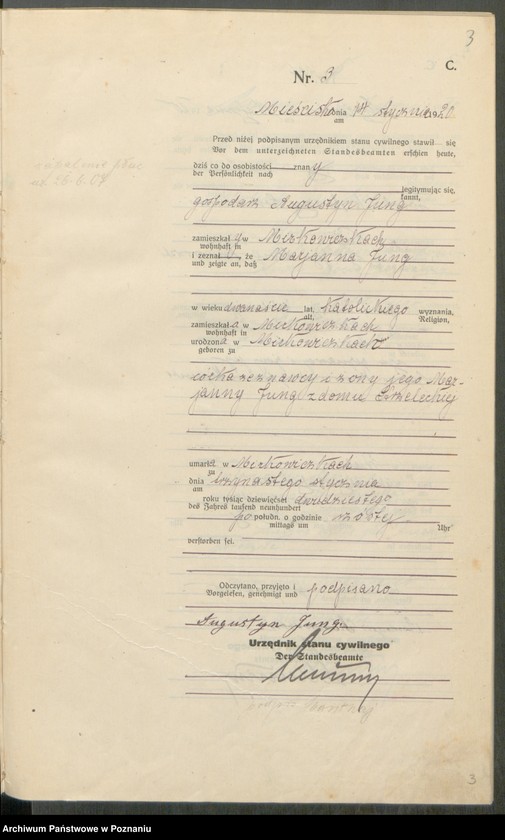 3
C.
Nr. 3
Mieścisko dnia 14 stycznia 1920.
am
Przed niżej podpisanym urzędnikiem stanu cywilnego stawił się
Vor dem unterzeichneten Standesbeamten erschien heute,
dziś co do osobistości znany
der Persönlichkeit nach
legitymując się,
kannt,
gospodarz Augustyn Jung
zamieszkały w
wohnhaft in
i zeznał, że Maryanna Jung
und zeigte an, daß
w wieku dwanaście lat, katolickiego wyznania,
alt, Religion,
zamieszkał w
wohnhaft in
urodzon w
geboren zu
córka zeznawcy i żony jego Mar-
janny Jung z domu Strzeleckiej
umarła w
zu
dnia trzynastego stycznia
am
roku tysiąc dziewięćset dwudziestego
des Jahres tausend neunhundert
po połudn. o godzinie szóstej
mittags um Uhr
verstorben sei.
Odczytano, przyjęto i podpisano
Vorgelesen, genehmigt und
Augustyn Jung.
Urzędnik stanu cywilnego
Der Standesbeamte
3
Archiwum Państwowe w Poznaniu